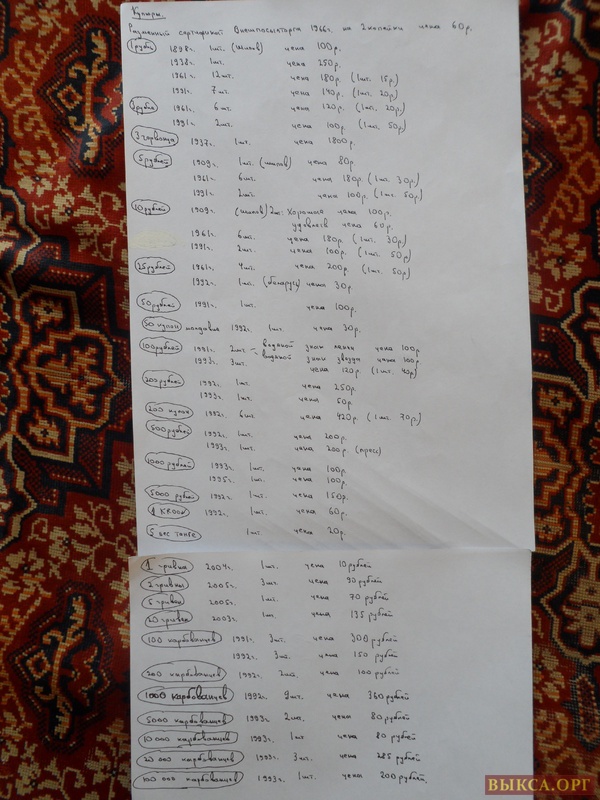 Купюры
Разменный сертификат Внешпосылторга 1966г. на 2 копейки цена 60р.
1 рубль 1898г. 1шт. (Шипов) цена 100р.
1938г. 1шт. цена 250р.
1961г. 12шт. цена 180р (1шт. 15р.)
1991г. 7шт. цена 140р. (1шт. 20р)
3 рубля 1961г. 6шт. цена 120р. (1шт. 20р.)
1991г. 2шт. цена 100р. (1шт. 50р)
3 червонца 1937г. 1шт. цена 1800р.
5 рублей 1909г. 1шт. (шипов) цена 80р
1961г. 6шт. цена 180р. (1шт. 30р.)
1991г. 2шт. цена 100р. (1шт. 50р)
10 рублей 1909г. (шипов) 2шт: Хорошая цена 100р.
удовлетв цена 60р.
1961г. 6шт. цена 180р (1шт. 30р.)
1991г. 2шт. цена 100р. (1шт. 50р)
25 рублей 1961г. 4шт. цена 200р (1шт. 50р)
1992г. 1шт. (беларусь) цена 30р.
50 рублей 1991г. 1шт. цена 100р.
50 купон молдавие 1992г. 1шт. цена 30р.
100 рублей 1991г. 2шт. - водяной знак ленин цена 100р
водяной знак звезда цена 100р
1993г. 3шт. цена 120р. (1шт. 40р)
200 рублей 1992г. 1шт. цена 250р.
1993г. 1шт. цена 50р.
200 купон 1992г. 6шт. цена 420р (1шт. 70р.)
500 рублей 1992г. 1шт. цена 200р.
1993г. 1шт. цена 200р. (пресс)
1000 рублей 1993г. 1шт. цена 100р.
1995г. 1шт. цена 100р.
5000 рублей 1992г. 1шт. цена 150р.
1 KROON 1992г. 1шт. цена 60р.
5 бес тенге 1шт. цена 20р.
1 гривна 2004г. 1шт. цена 10 рублей
2 гривны 2005г. 3шт. цена 90 рублей
5 гривен 2005г. 1шт. цена 70 рублей
20 гривен 2003г. 1шт. цена 135 рублей
100 карбованцев 1991г. 3шт. цена 300 рублей
1992г. 3шт. цена 150 рублей
200 карбованцев 1992г. 2шт. цена 100 рублей
1000 карбованцев 1992г. 9шт. цена 360 рублей
5000 карбованцев 1993г. 2шт. цена 80 рублей
10 000 карбованцев 1993г. 1шт цена 80 рублей
20 000 карбованцев 1993г. 3шт. цена 285 рублей
100 000 карбованцев 1993г. 1шт. цена 200 рублей.
ВЫКСА.ОРГ